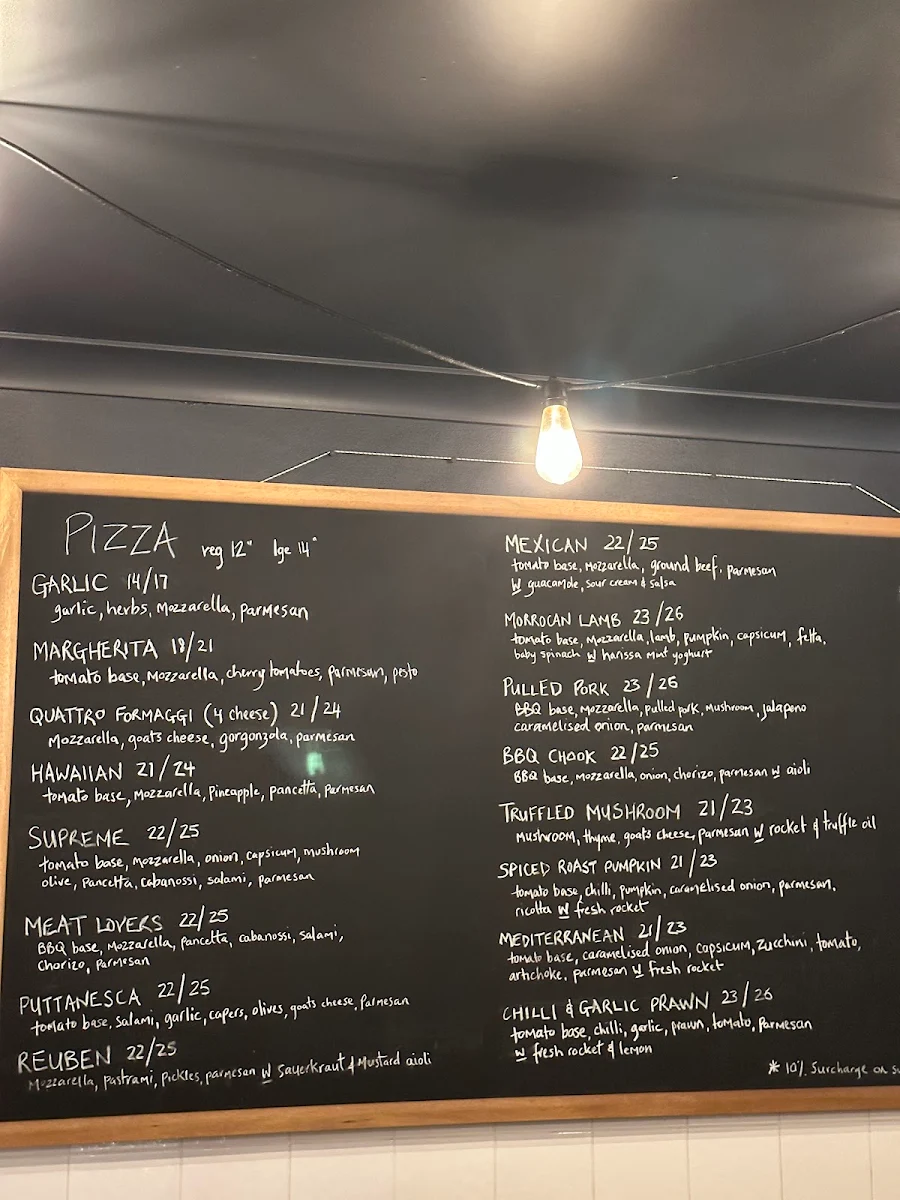 PIZZA reg 12" lge 14"
GARLIC 14/17
garlic, herbs, Mozzarella, parmesan
MARGHERITA 18/21
tomato base, Mozzarella, cherry tomatoes, parmesan, pesto
QUATTRO FORMAGGI (4 cheese) 21/24
Mozzarella, goats cheese, gorgonzola, parmesan
HAWAIIAN 21/24
tomato base, Mozzarella, Pineapple, pancetta, Parmesan
SUPREME 22/25
tomato base, Mozzarella, onion, capsicum, mushroom
olive, Pancetta, Cabanossi, salami, parmesan
MEAT LOVERS 22/25
BBQ base, Mozzarella, Pancetta, cabanossi, salami,
Chorizo, Parmesan
PUTTANESCA 22/25
tomato base, Salami, garlic, capers, olives, goats cheese, Parmesan
REUBEN 22/25
Mozzarella, Pastrami, Pickles, parmesan W Sauerkraut & Mustard aioli
MEXICAN 22/25
tomato base, Mozzarella, ground beef, parmesan
W guacamole, sour cream & salsa
MORROCAN LAMB 23/26
tomato base, Mozzarella, lamb, pumpkin, capsicum, fetta,
baby spinach W harissa mint yoghurt
PULLED PORK 23/26
BBQ base, Mozzarella, pulled pork, Mushroom, jalapeno
caramelised onion, parmesan
BBQ CHOOK 22/25
BBQ base, Mozzarella, onion, chorizo, parmesan W aioli
TRUFFLED MUSHROOM 21/23
Mushroom, thyme, goats cheese, Parmesan W rocket & truffle oil
SPICED ROAST PUMPKIN 21/23
tomato base, chilli, pumpkin, caramelised onion, parmesan,
ricotta W fresh rocket
MEDITERRANEAN 21/23
tomato base, caramelised onion, capsicum, Zucchini, tomato,
artichoke, parmesan W fresh rocket
CHILLI & GARLIC PRAWN 23/26
tomato base, chilli, garlic, prawn, tomato, Parmesan
W fresh rocket & lemon
* 10% Surcharge on